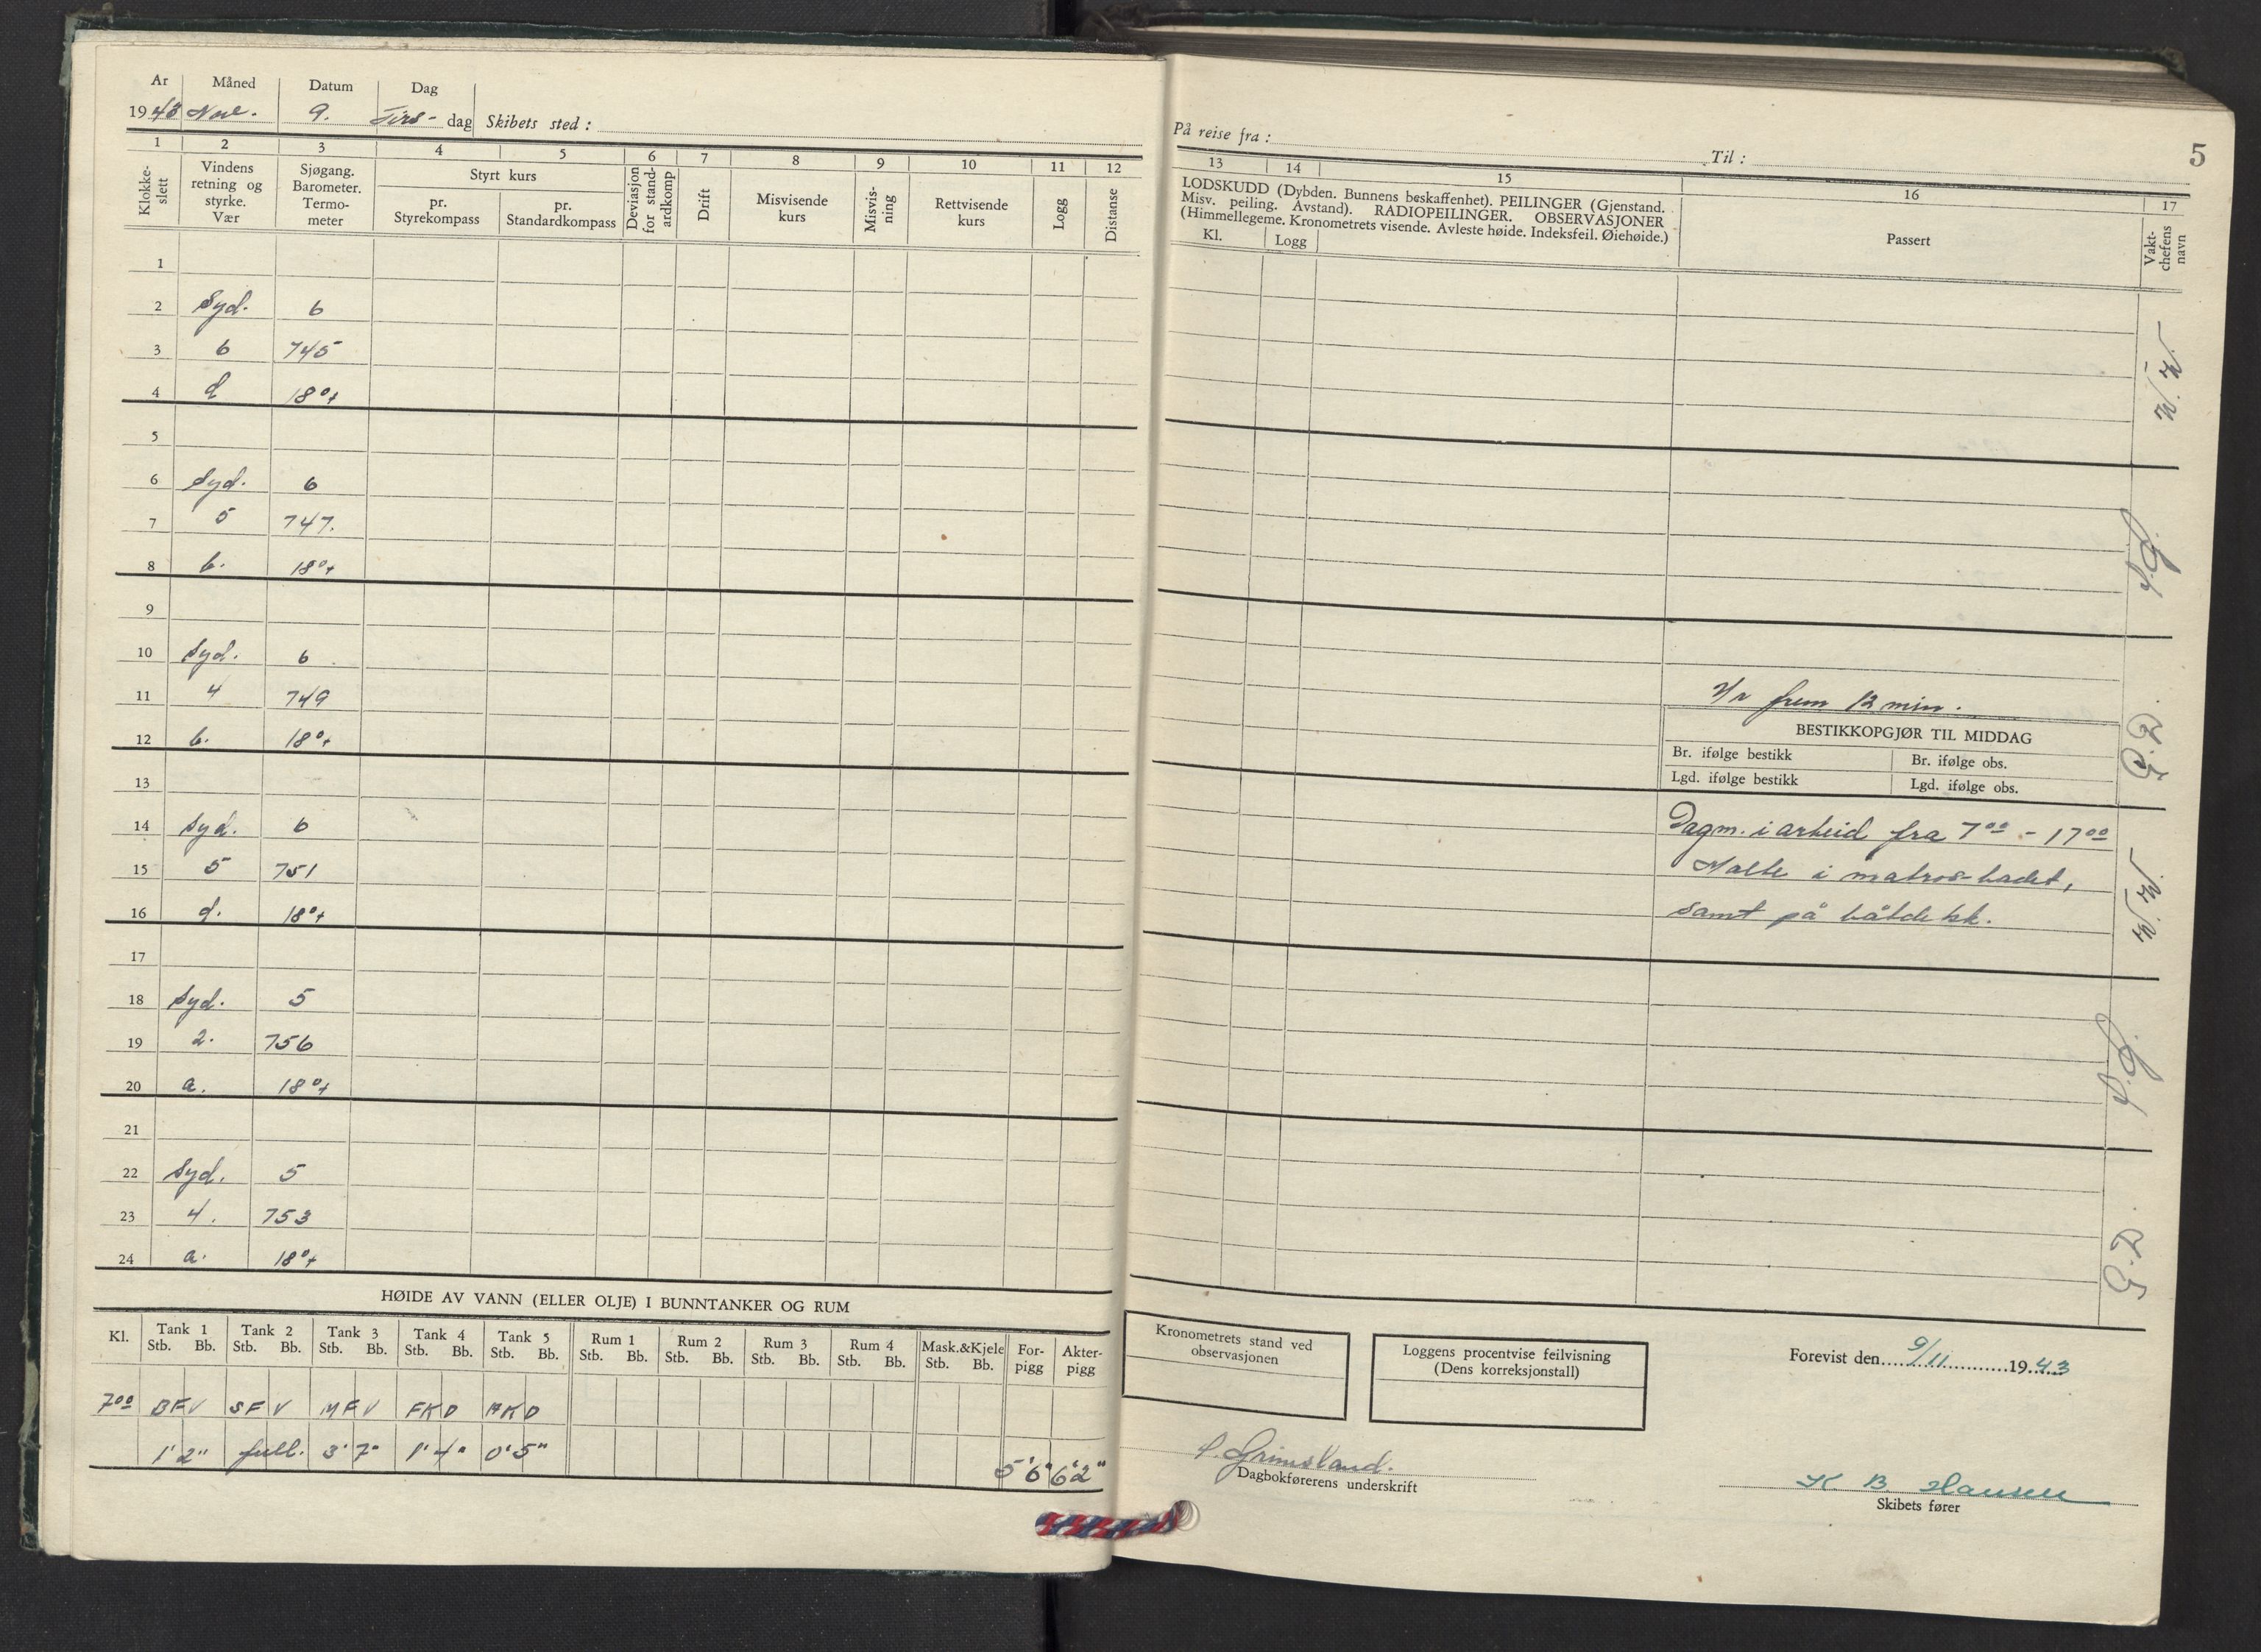 Ar Måned Datum Dag
1943 Nov. 9. Tirs- dag Skibets sted :
1 2 3 4 5 6 7 8 9 10 11 12
Klokke-slett
Vindens retning og styrke. Vær
Sjøgang. Barometer. Termo-meter
Styrt kurs
pr. Styrekompass
pr. Standardkompass
Deviasjon for stand-ardkomp
Drift
Misvisende kurs
Misvis-ning
Rettvisende kurs
Logg
Distanse
1
2 Syd. 6
3 6 745
4 d 18°+
5
6 Syd. 6
7 5 747.
8 b. 18°+
9
10 Syd. 6
11 4 749
12 b. 18°+
13
14 Syd. 6
15 5 751
16 d. 18°+
17
18 Syd. 5
19 2. 756
20 a. 18°+
21
22 Syd. 5
23 4. 753
24 a. 18°+
HØIDE AV VANN (ELLER OLJE) I BUNNTANKER OG RUM
Kl. Tank 1 Tank 2 Tank 3 Tank 4 Tank 5 Rum 1 Rum 2 Rum 3 Rum 4 Mask.&Kjele For-pigg Akter-pigg
Stb. Bb. Stb. Bb. Stb. Bb. Stb. Bb. Stb. Bb. Stb. Bb. Stb. Bb. Stb. Bb. Stb. Bb. Stb. Bb.
7 00 BFV SFV MFV FKD AKD
1' 2" full. 3' 7" 1' 4" 0' 5" 5' 6" 6' 2"
På reise fra : Til : 5
13 14 15 16 17
LODSKUDD (Dybden. Bunnens beskaffenhet). PEILINGER (Gjenstand.
Misv. peiling. Avstand). RADIOPEILINGER. OBSERVASJONER
(Himmellegeme. Kronometrets visende. Avleste høide. Indeksfeil. Øiehøide.)
Kl. Logg
Passert
Vakt-chefens navn
W.W.
P.G.
Ur frem 12 min.
BESTIKKOPGJØR TIL MIDDAG
Br. ifølge bestikk Br. ifølge obs.
Lgd. ifølge bestikk Lgd. ifølge obs.
G.D.
Dagm. i arbeid fra 7 00 - 17 00
Malte i matros-badet,
samt på båtdekk.
W.W.
P.G.
G.D.
Kronometrets stand ved observasjonen
Loggens procentvise feilvisning
(Dens korreksjonstall)
Forevist den 9/11 1943
P. Grimsland.
Dagbokførerens underskrift
K. B. Hansen
Skibets fører